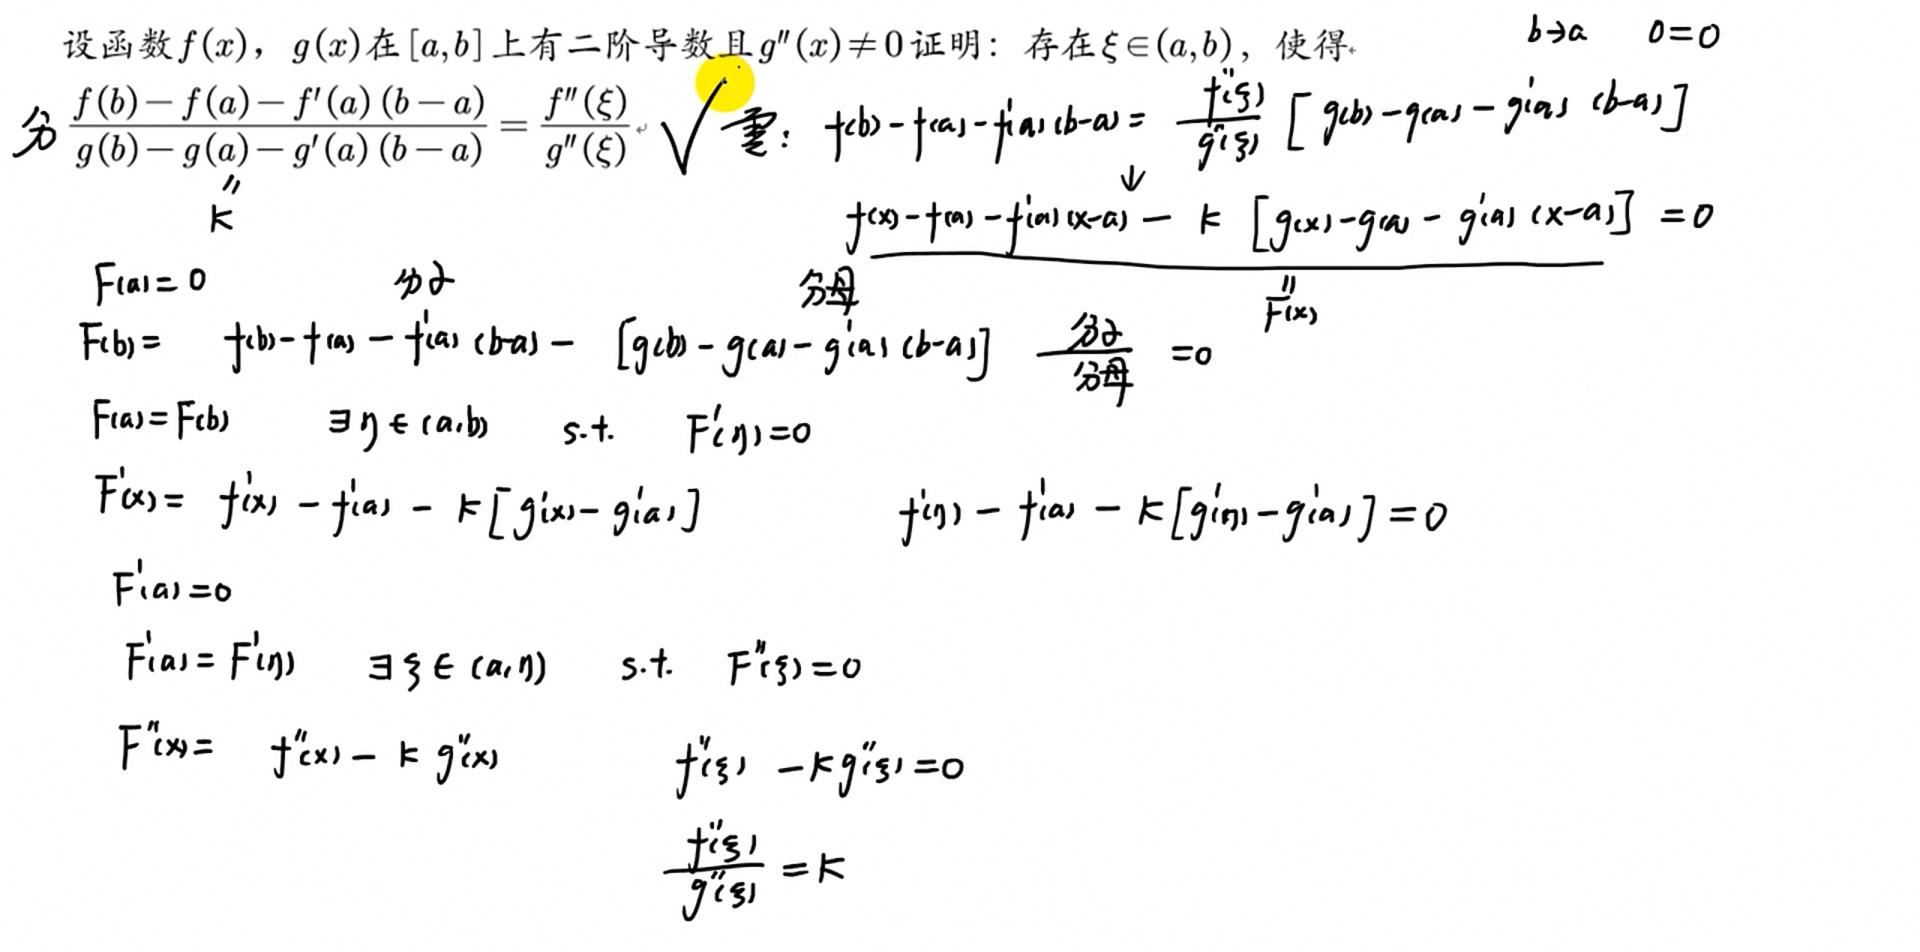 设函数f(x)，g(x)在[a,b]上有二阶导数且g″(x)≠0证明：存在ξ∈(a,b)，使得 b→a 0=0
分 (f(b)−f(a)−f′(a)(b−a))/(g(b)−g(a)−g′(a)(b−a)) = f″(ξ)/g″(ξ) √ 需: f(b)-f(a)-f'(a)(b-a) = f"(ξ)/g"(ξ) [g(b)-g(a)-g'(a)(b-a)]
" ↓
k f(x)-f(a)-f'(a)(x-a) - k [g(x)-g(a)-g'(a)(x-a)] = 0
F(a)=0 分子 分母 " F(x)
F(b)= f(b)-f(a)-f'(a)(b-a) - [g(b)-g(a)-g'(a)(b-a)] 分子/分母 =0
F(a)=F(b) ∃η∈(a,b) s.t. F'(η)=0
F'(x)= f'(x)-f'(a)-k[g'(x)-g'(a)] f'(η)-f'(a)-k[g'(η)-g'(a)]=0
F'(a)=0
F'(a)=F'(η) ∃ξ∈(a,η) s.t. F"(ξ)=0
F"(x)= f"(x)-k g"(x) f"(ξ)-kg"(ξ)=0
f"(ξ)/g"(ξ) =k